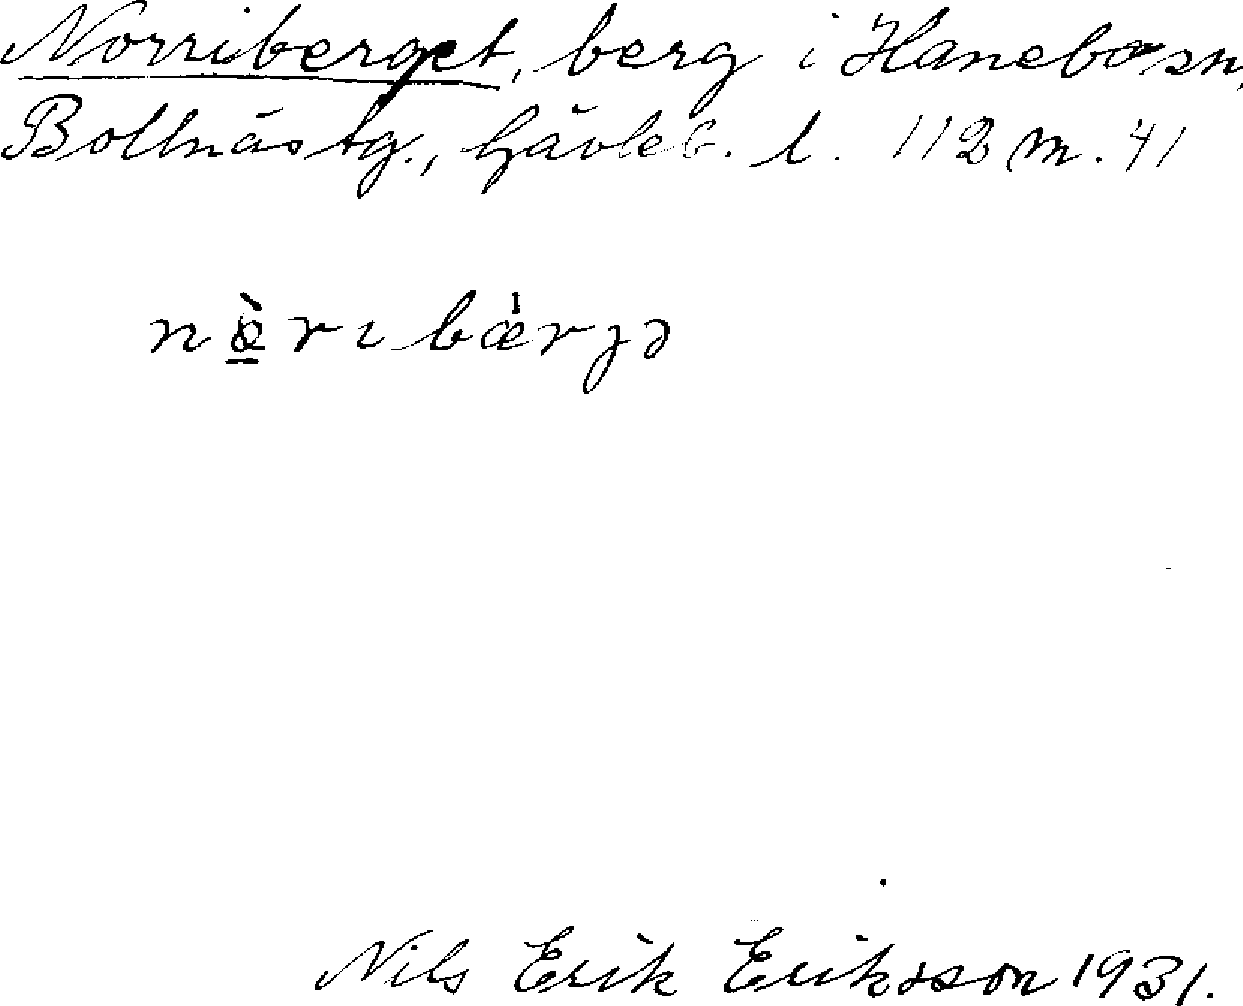 Norriberget, berg i Hanebo sn,
Bollnäs tg., Gävleb. l. 112 m. 41
nö̀rɩbǽrȷə
Nils Erik Eriksson 1931.